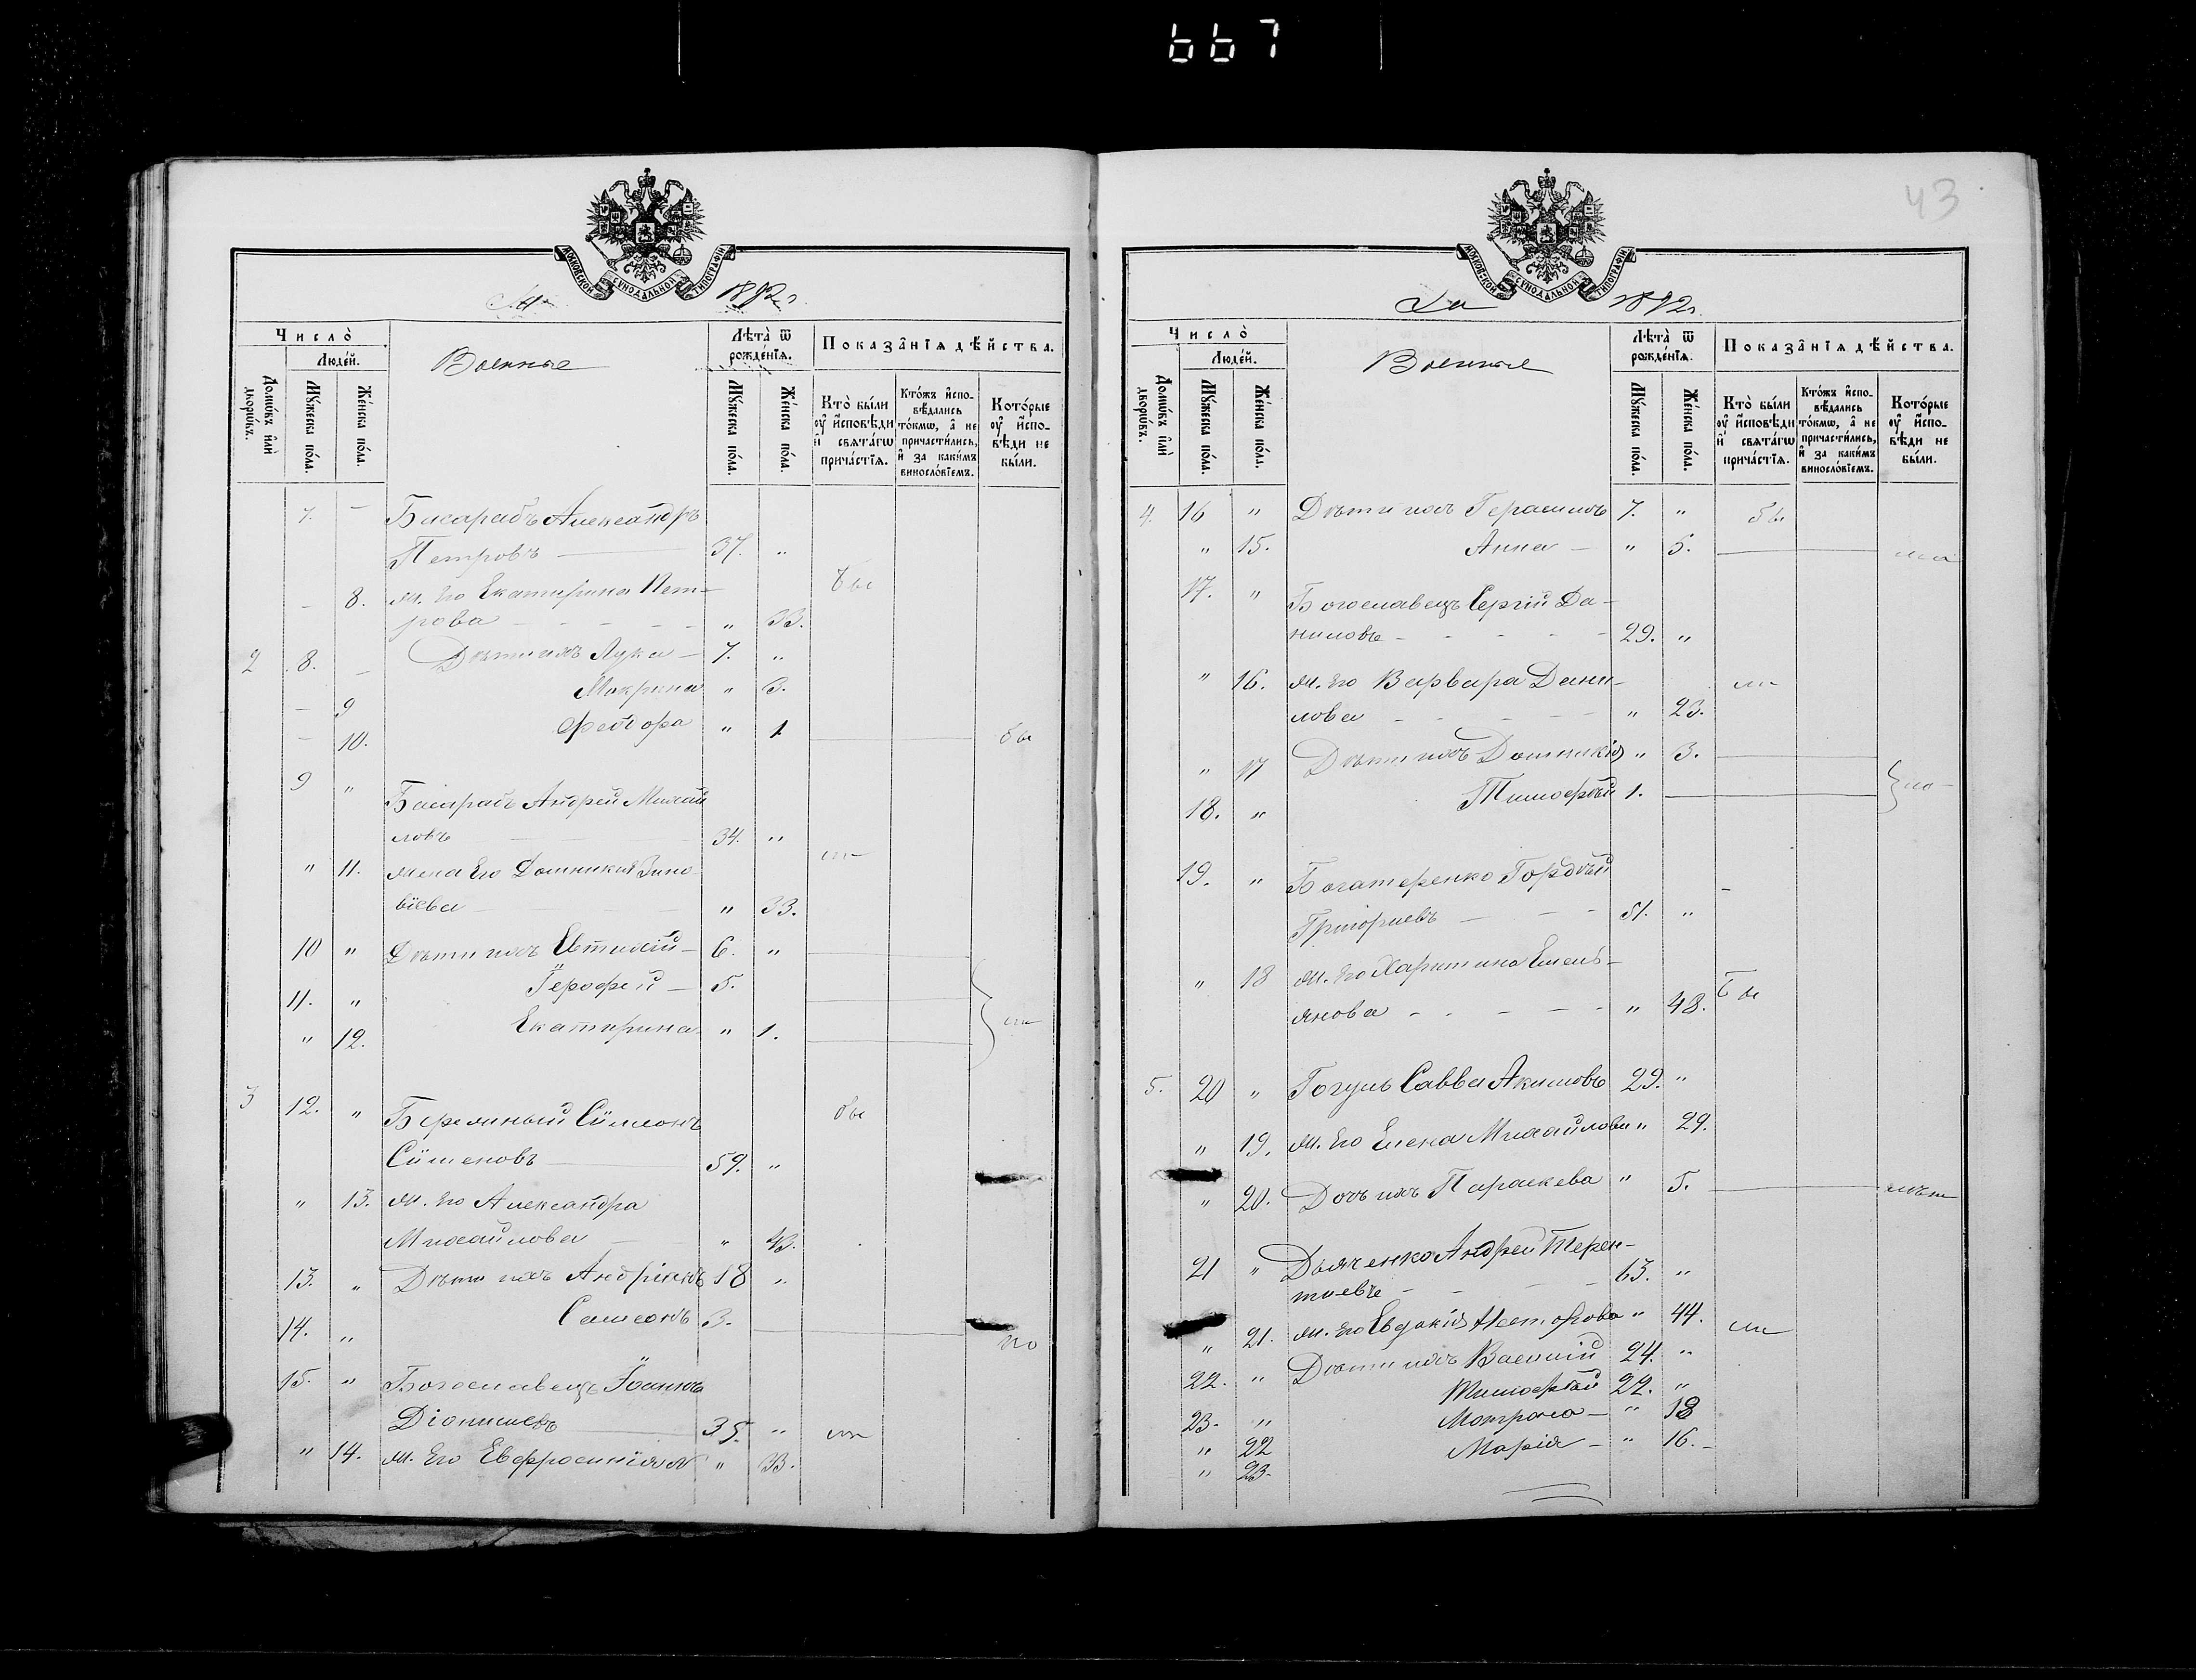 667
МОСКОВСКОЙ СѴНОДАЛЬНОЙ ТИПОГРАФІИ
1892 г.
Число̀
Люде́й.
Домѡ́въ и҆лѝ дворѡ́въ.
Мꙋ́жеска по́ла.
Же́нска по́ла.
Военные
Лѣта̀ ѿ рожде́нїѧ.
Мꙋ́жеска по́ла.
Же́нска по́ла.
Показа̑нїѧ дѣ́йства.
Кто̀ бы́ли ᲂу҆ и҆сповѣ́ди и҆ свѧта́гѡ прича́стїѧ.
Кто́жъ и҆сповѣ́дались то́кмѡ, а҆ не причасти́лись, и҆ за каки́мъ виносло́вїемъ.
Кото́рые ᲂу҆ и҆сповѣ́ди не бы́ли.
7. Бисарабъ Александръ
Петровъ 37. "
8. ж. его Екатерина Пет-
рова " 33. бы
2 8. Дѣти ихъ Лука 7. "
9 Макрина " 3.
10. Феѳдора " 1 бы
9 " Бисарабъ Андрей Михай
ловъ 34. "
" 11. жена его Домникія Зино
віева " 33. ли
10 " Дѣти ихъ Евтихій 6. "
11. " Герофей 5.
" 12. Екатерина " 1. ли
3 12. " Бережный Сімеонъ бы
Сіменовъ 59. "
" 13. ж. его Александра
Михайлова " 43.
13. " Дѣти ихъ Андріанъ 18 "
14. " Самсонъ 3.
15. " Богославецъ Іоаннъ
Діонисіевъ 35. " ли
" 14. ж. его Евфросинія " 33.
43
За 1892 г.
Число̀
Люде́й.
Домѡ́въ и҆лѝ дворѡ́въ.
Мꙋ́жеска по́ла.
Же́нска по́ла.
Военные
Лѣта̀ ѿ рожде́нїѧ.
Мꙋ́жеска по́ла.
Же́нска по́ла.
Показа̑нїѧ дѣ́йства.
Кто̀ бы́ли ᲂу҆ и҆сповѣ́ди и҆ свѧта́гѡ прича́стїѧ.
Кто́жъ и҆сповѣ́дались то́кмѡ, а҆ не причасти́лись, и҆ за каки́мъ виносло́вїемъ.
Кото́рые ᲂу҆ и҆сповѣ́ди не бы́ли.
4. 16 " Дѣти ихъ Герасимъ 7. " бы
" 15. Анна " 5. ма
17. " Богославецъ Сергій Да-
ниловъ 29. "
" 16. ж. его Варвара Дани- ли
лова " 23.
" 17 Дѣти ихъ Домникія " 3.
18. " Тимофѣй 1.
19. " Богатеренко Гордѣй
Григориевъ 51. "
" 18 ж. его Харитина Емель- бы
янова " 48.
5. 20 " Гогуль Савва Акимовъ 29. "
" 19. ж. его Елена Михайлова " 29.
" 20. Дочь ихъ Параскева " 5.
21 " Дьяченко Андрей Терен-
тиевъ 63. "
" 21. ж. его Евдокія Несторова " 44. ли
22. " Дѣти ихъ Василій 24. "
23. " Тимофѣй 22. "
" 22 Матрона " 18
" 23. Марія " 16.